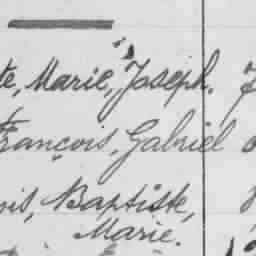 te, Marie, Joseph.
François, Gabriel
ois, Baptiste,
Marie.